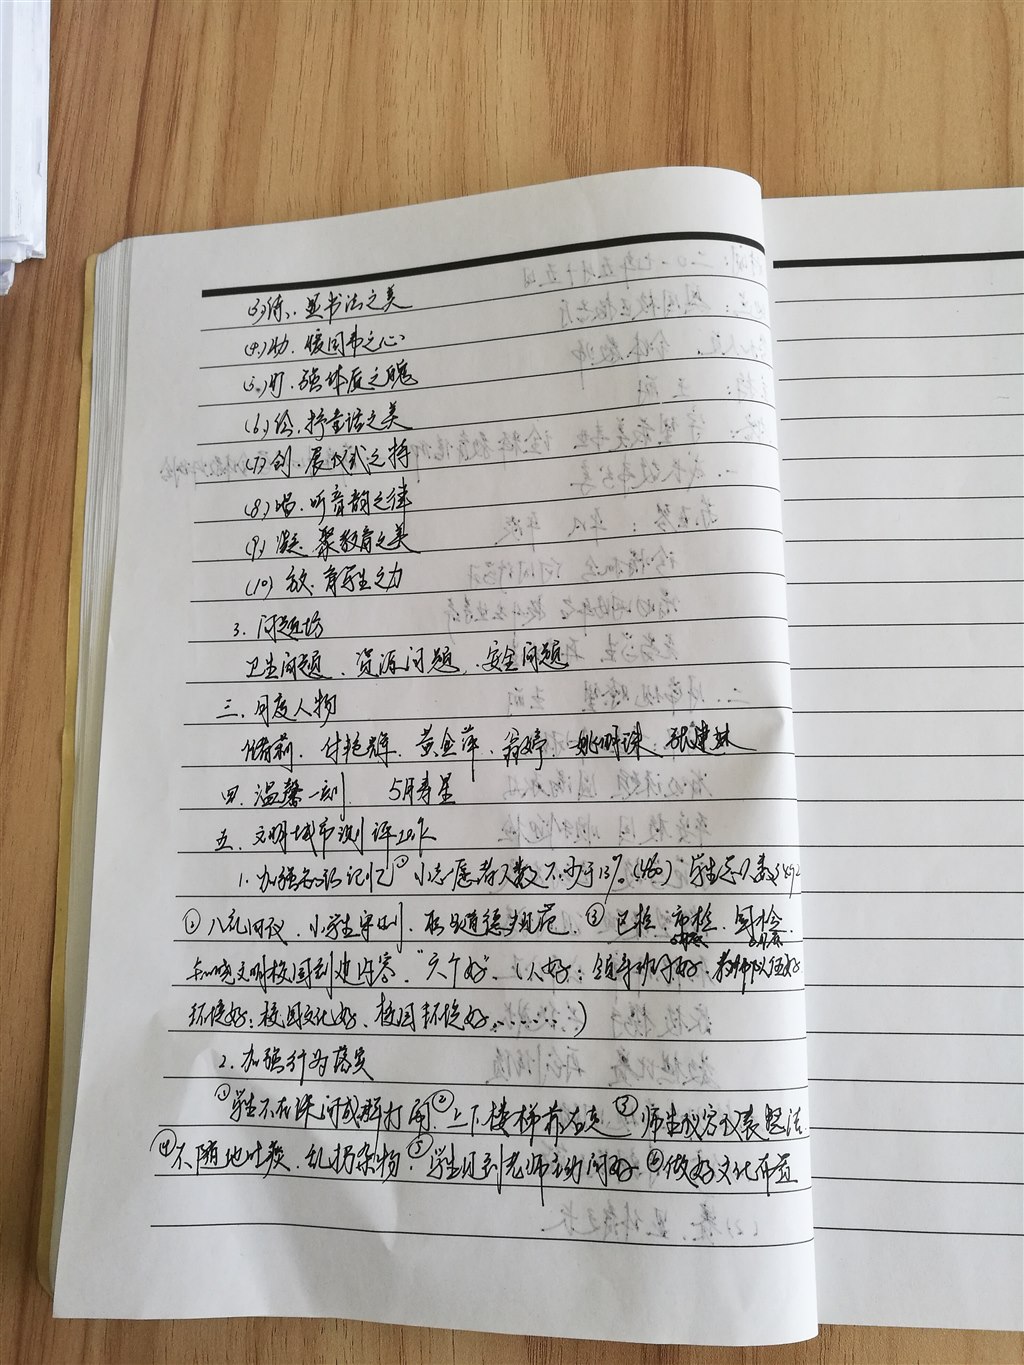 (3)练、显书法之美
(4)幼、暖图书之心
(5)灯、强体质之魄
(6)绘、抒童话之美
(7)创、展仪式之特
(8)唱、听音韵之律
(9)凝、聚教育之美
(10)放、育学生之力
3、问题场
卫生问题、资源问题、安全问题
三、月度人物
莉、付艳辉、黄金萍、翁婷、姚明珠、张建妹
四、温馨一刻 5月寿星
五、文明城市测评
1、加强知识记忆 ① 小志愿者人数不少于13% 学生总人数
② 八礼四仪、小学生守则、道德规范、③ 区检、市检、国检
知晓文明校园创建内容、"六个好"、(人好:领导班子好、教师队伍好
环境好:校园文化好、校园环境好、……)
2、加强行为落实
①学生不在课间或 打闹、②上下楼梯靠右走 ③师生仪容仪表整洁
④不随地吐痰、乱扔杂物、⑤学生见到老师主动问好、⑥做好文化布置